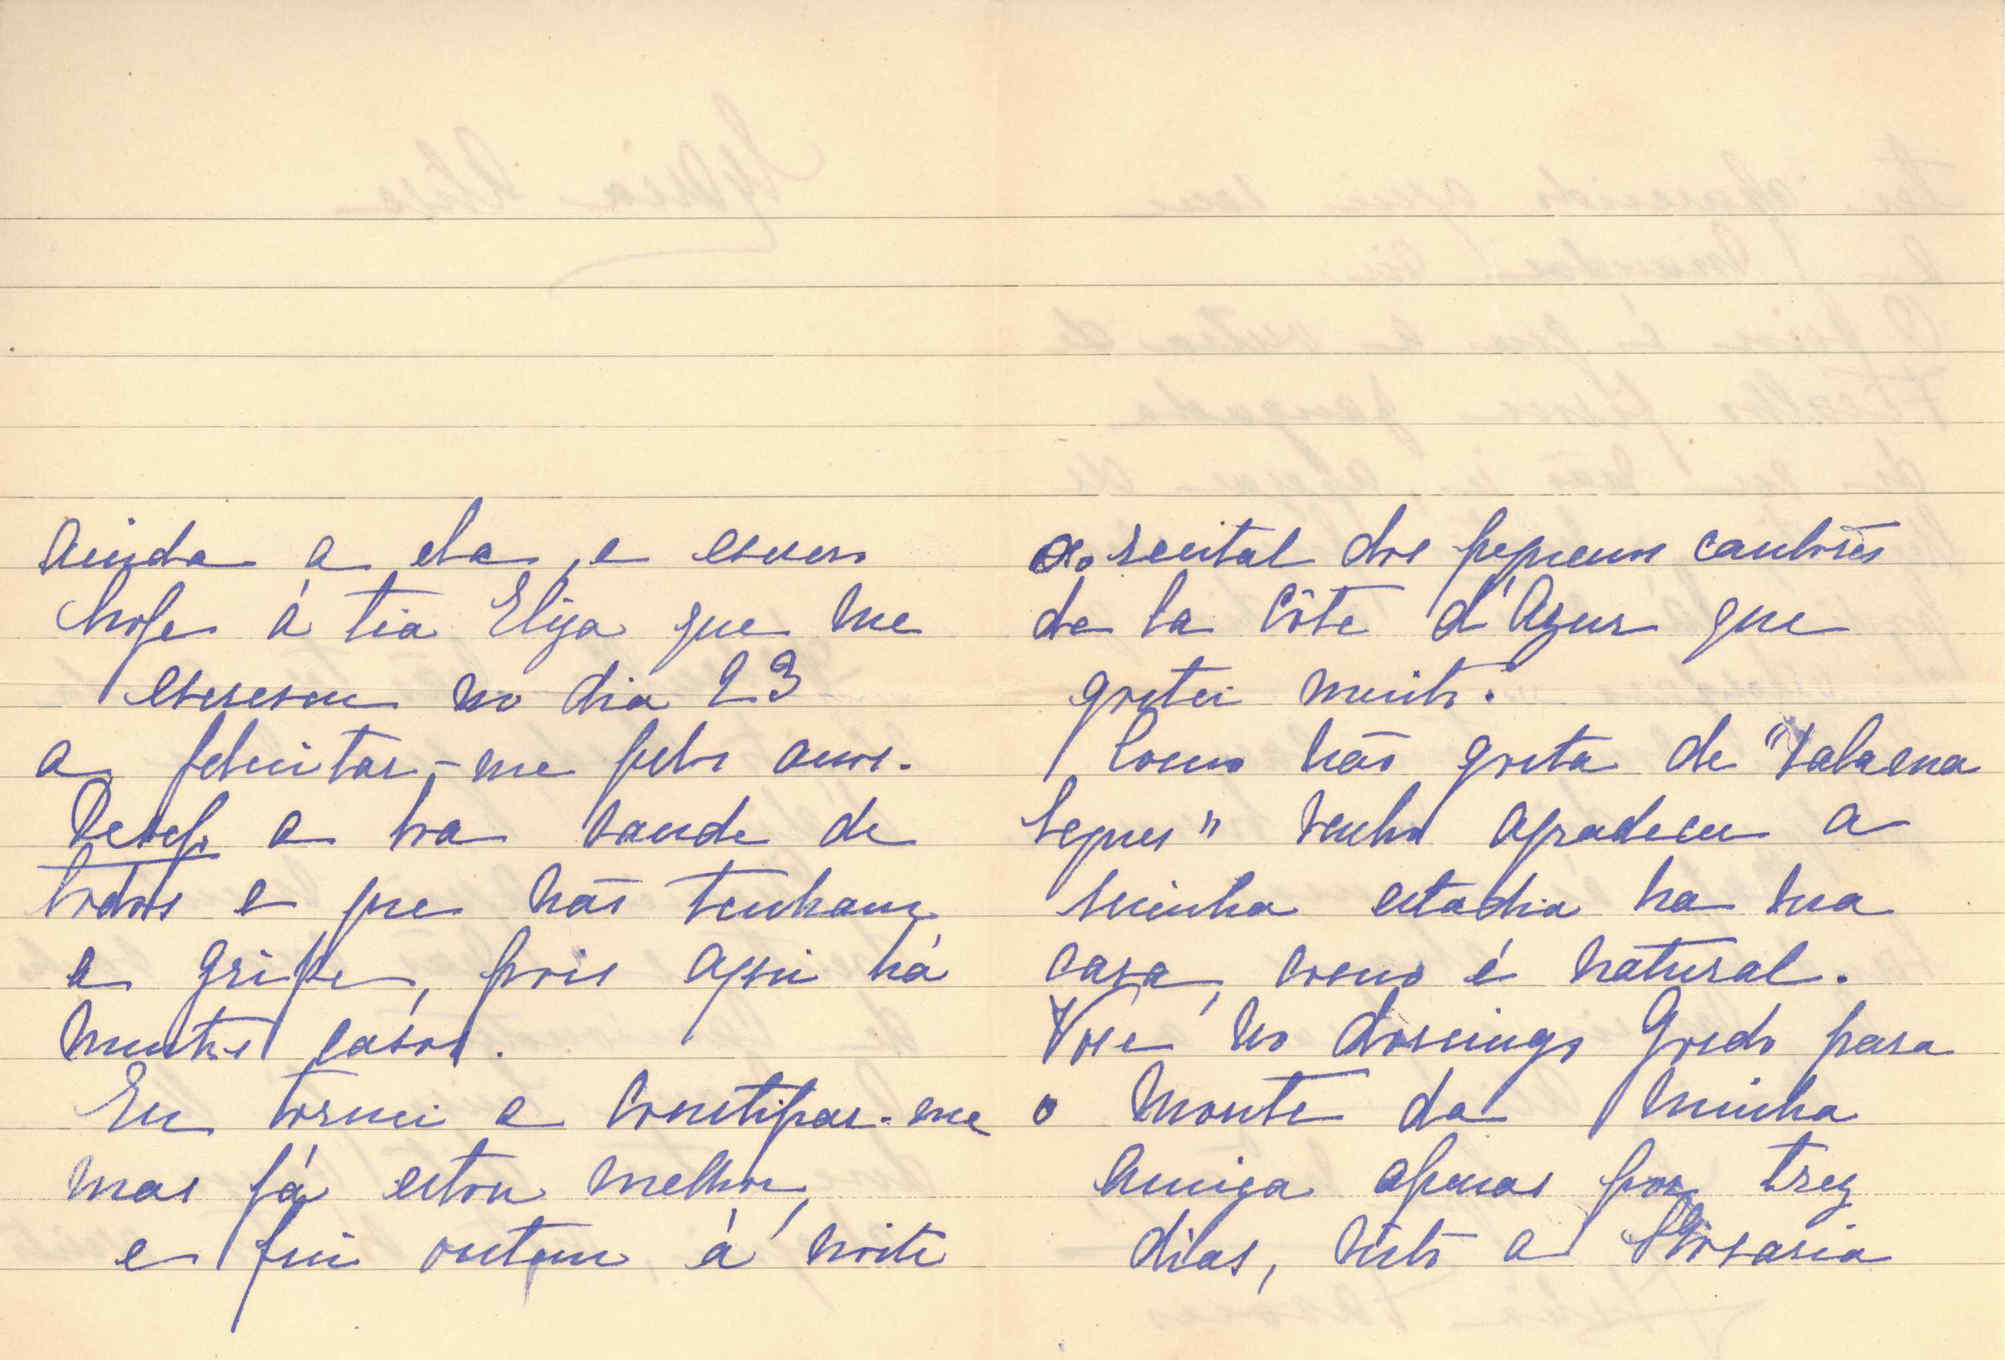 ainda a ela, e escrevo
hoje á tia Eliza que me
escreveu no dia 23
a felicitar-me pelos anos.
Desejo a boa saude de
todos e que não tenham
a gripe, pois aqui há
muitos casos.
Eu tornei a constipar-me
mas já estou melhor,
e fui ontem, á noite
ao recital dos pequenos cantores
de la Côte d'Azur que
gostei muito.
Como não gosta de
venho agradecer a
minha estadia na sua
casa, como é natural.
Vou no domingo Gordo para
o Monte da minha
amiga apenas por trez
dias, visto a Rosaria